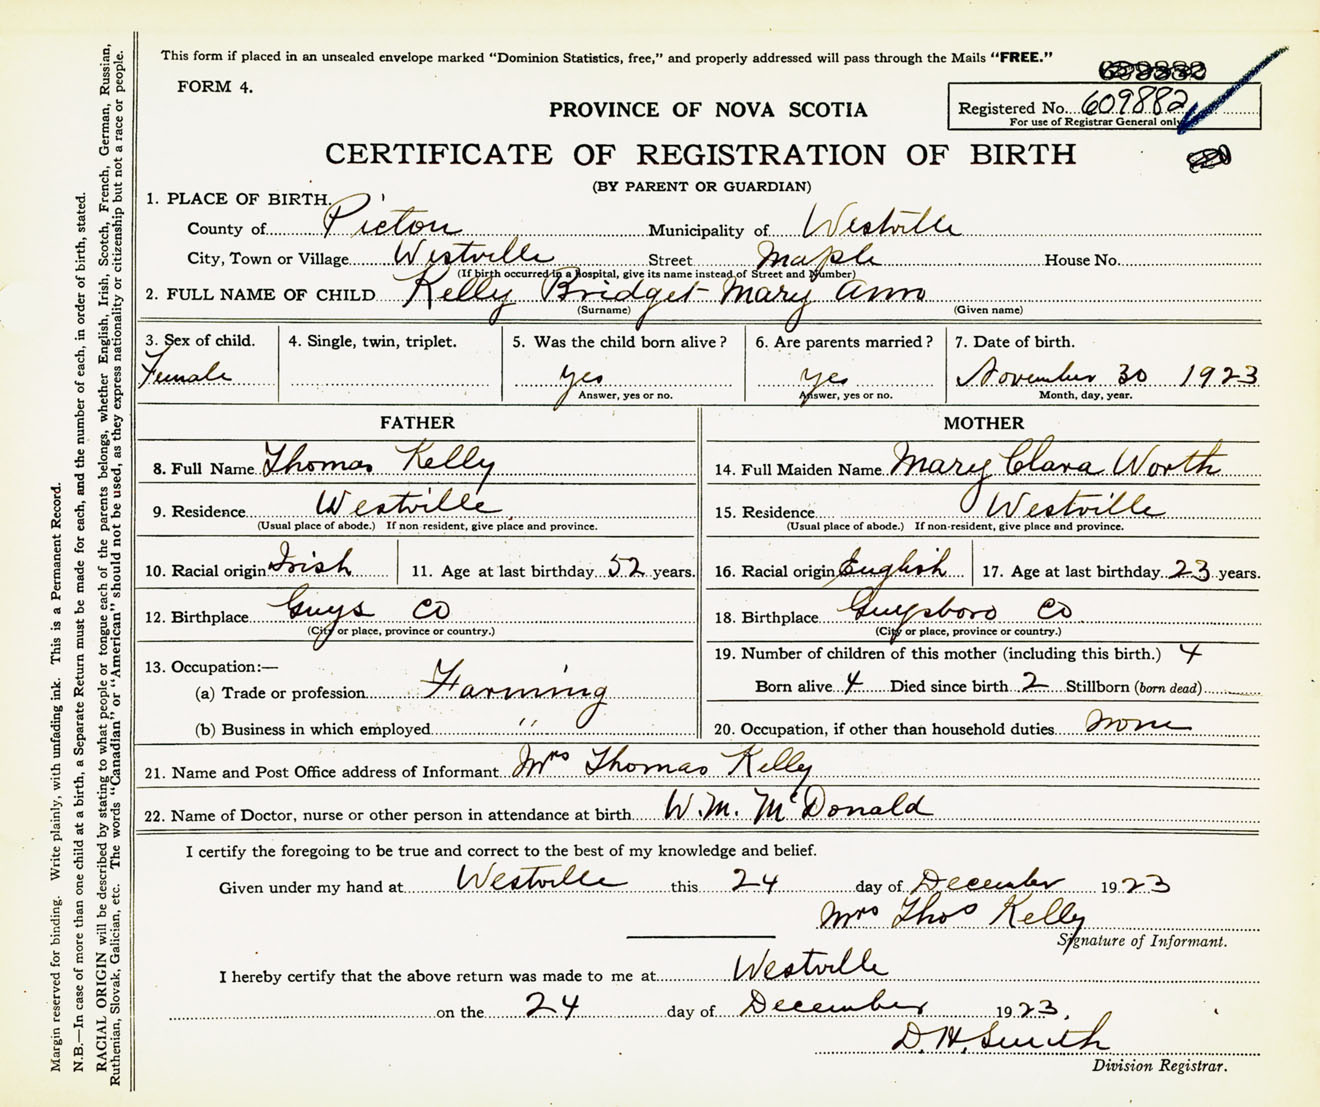 This form if placed in an unsealed envelope marked "Dominion Statistics, free," and properly addressed will pass through the Mails "FREE."
FORM 4.
PROVINCE OF NOVA SCOTIA
Registered No. 609882
For use of Registrar General only
CERTIFICATE OF REGISTRATION OF BIRTH
(BY PARENT OR GUARDIAN)
1. PLACE OF BIRTH.
County of Pictou Municipality of Westville
City, Town or Village Westville Street Maple House No.
(If birth occurred in a hospital, give its name instead of Street and Number)
2. FULL NAME OF CHILD Kelly Bridget Mary Ann
(Surname) (Given name)
3. Sex of child. 4. Single, twin, triplet. 5. Was the child born alive? 6. Are parents married? 7. Date of birth.
Female yes yes November 30 1923
Answer, yes or no. Answer, yes or no. Month, day, year.
FATHER MOTHER
8. Full Name Thomas Kelly 14. Full Maiden Name Mary Clara Worth
9. Residence Westville 15. Residence Westville
(Usual place of abode.) If non-resident, give place and province. (Usual place of abode.) If non-resident, give place and province.
10. Racial origin Irish 11. Age at last birthday 52 years. 16. Racial origin English 17. Age at last birthday 23 years.
12. Birthplace Guys Co 18. Birthplace Guysboro Co
(City or place, province or country.) (City or place, province or country.)
13. Occupation:— 19. Number of children of this mother (including this birth.) 4
(a) Trade or profession Farming Born alive 4 Died since birth 2 Stillborn (born dead)
(b) Business in which employed " 20. Occupation, if other than household duties none
21. Name and Post Office address of Informant Mrs Thomas Kelly
22. Name of Doctor, nurse or other person in attendance at birth W. M. McDonald
I certify the foregoing to be true and correct to the best of my knowledge and belief.
Given under my hand at Westville this 24 day of December 1923
Mrs Thos Kelly
Signature of Informant.
I hereby certify that the above return was made to me at Westville
on the 24 day of December 1923.
D. H. Smith
Division Registrar.
Margin reserved for binding. Write plainly, with unfading ink. This is a Permanent Record.
N.B.—In case of more than one child at a birth, a Separate Return must be made for each, and the number of each, in order of birth, stated.
RACIAL ORIGIN will be described by stating to what people or tongue each of the parents belongs, whether English, Irish, Scotch, French, German, Russian,
Ruthenian, Slovak, Galician, etc. The words "Canadian" or "American" should not be used, as they express nationality or citizenship but not a race or people.